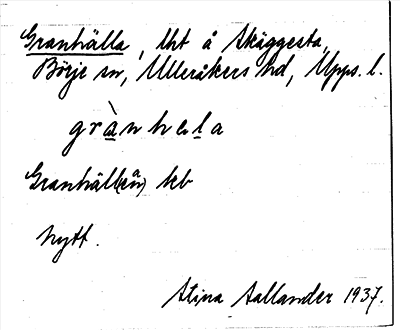 Granhälla, lht å Skäggesta,
Börje sn, Ulleråkers hd, Upps. l.
grànhεla
Granhäll(en) kb
Nytt.
Stina Sallander 1937.